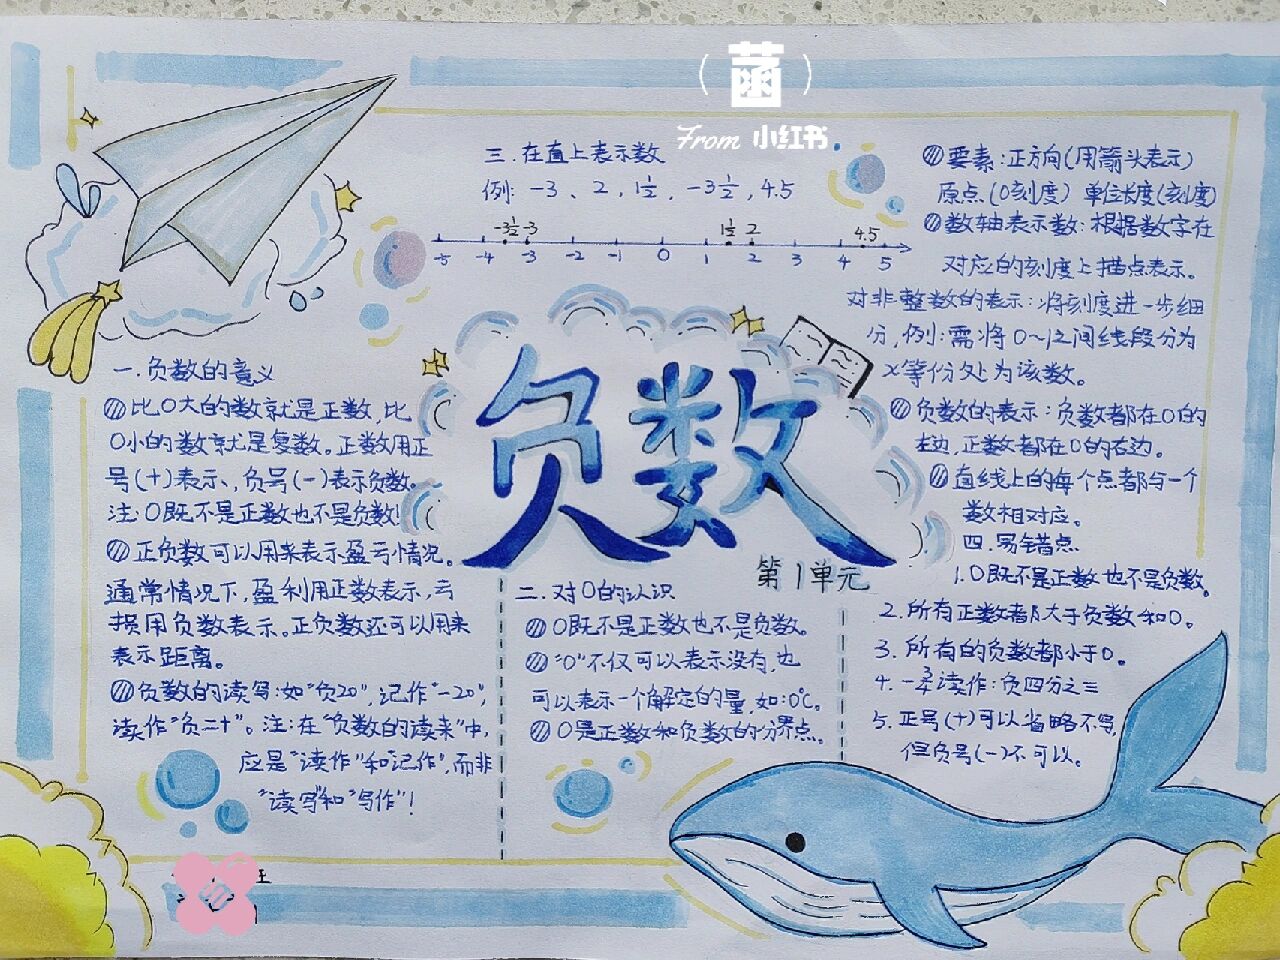 （菡）
From 小红书.
三.在直上表示数
例: -3、2, 1½, -3½, 4.5
-3½ -3 1½ 2 4.5
-5 -4 -3 -2 -1 0 1 2 3 4 5
要素:正方向(用箭头表示)
原点(0刻度) 单位长度(刻度)
数轴表示数:根据数字在
对应的刻度上描点表示。
对非整数的表示:将刻度进一步细
分,例:需将0~1之间线段分为
x等份处为该数。
负数的表示:负数都在0的
左边,正数都在0的右边。
直线上的每个点都与一个
数相对应。
四.易错点
1.0既不是正数也不是负数。
2.所有正数都大于负数和0。
3.所有的负数都小于0。
4. -¾读作:负四分之三
5.正号(+)可以省略不写,
但负号(-)不可以。
负数
第1单元
一.负数的意义
比0大的数就是正数,比
0小的数就是复数。正数用正
号(+)表示、负号(-)表示负数。
注:0既不是正数也不是负数!
正负数可以用来表示盈亏情况。
通常情况下,盈利用正数表示,亏
损用负数表示。正负数还可以用来
表示距离。
负数的读写:如“负20”,记作“-20”,
读作“负二十”。注:在“负数的读来”中,
应是“读作”和“记作”,而非
“读写”和“写作”!
二.对0的认识
0既不是正数也不是负数。
“0”不仅可以表示没有,也
可以表示一个解定的量,如:0℃。
0是正数和负数的分界点。